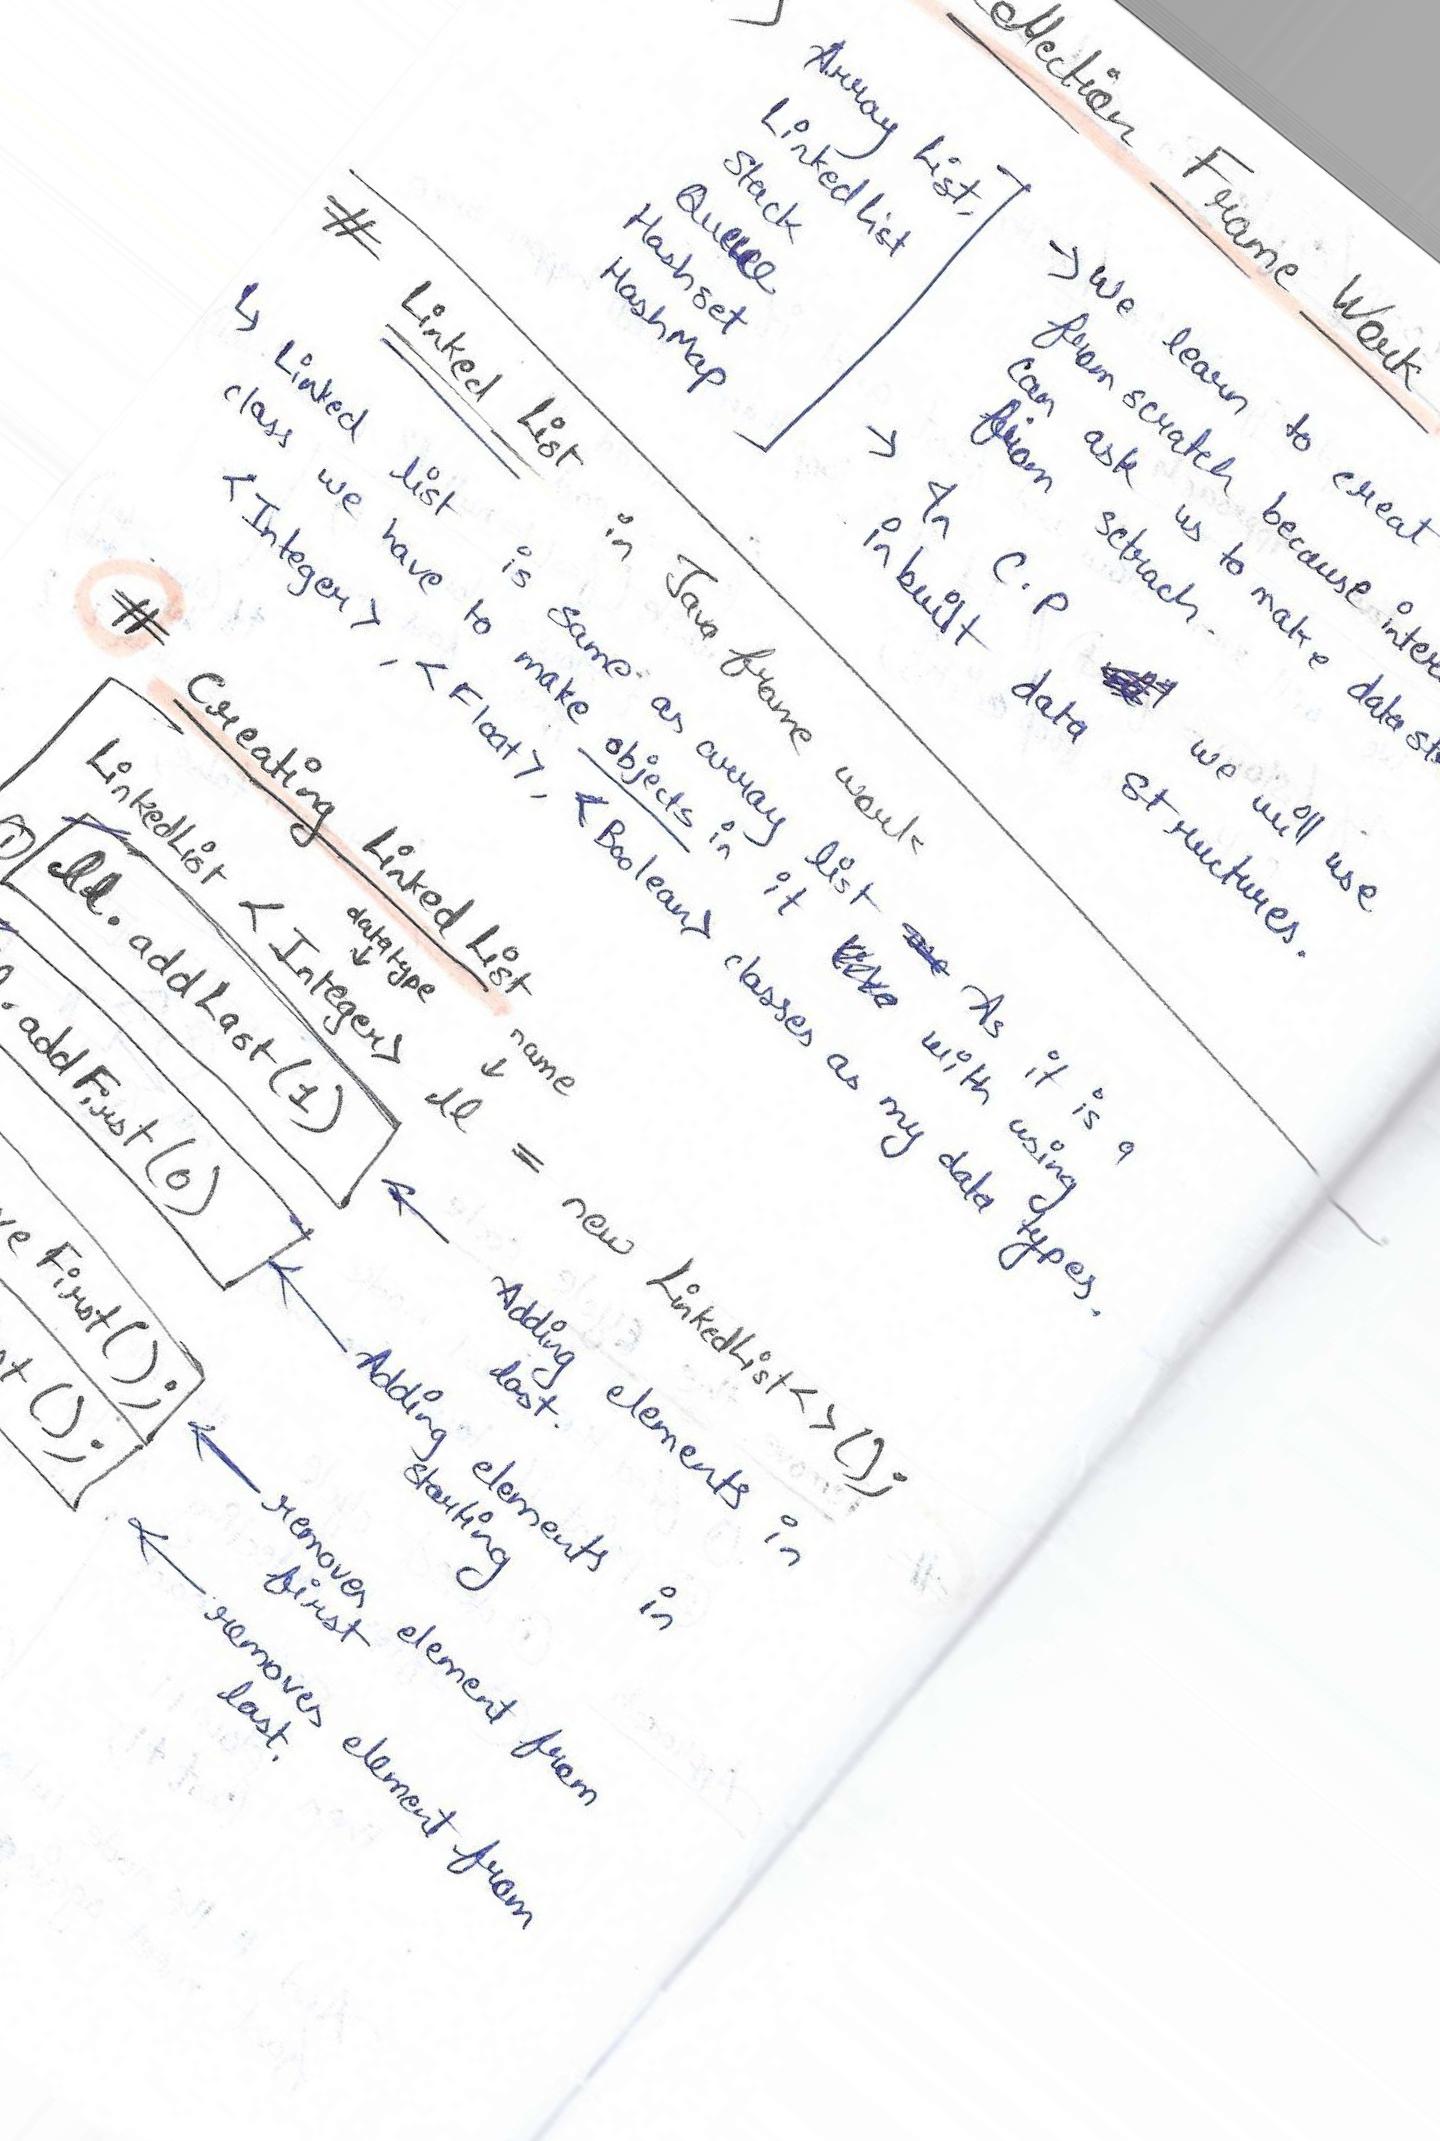 llection Frame Work
Array List,
Linked List
Stack
Queue
Hashset
HashMap
→ We learn to creat
from scratch because inter
can ask us to make data st
from sctrach.
→ In C.P we will use
inbuilt data structures.
# Linked List in Java frame work
↳ Linked list is same as array list As it is a
class we have to make objects in it with using
<Integer>, <Float>, <Boolean> classes as my data types.
# Creating Linked List
datatype name
↓ ↓
LinkedList <Integer> ll = new LinkedList<>();
① ll.addLast(1) ← Adding elements in
last.
l.addFirst(0) ← Adding elements in
starting
ve First(); ← removes element from
first
st(); ← removes element from
last.